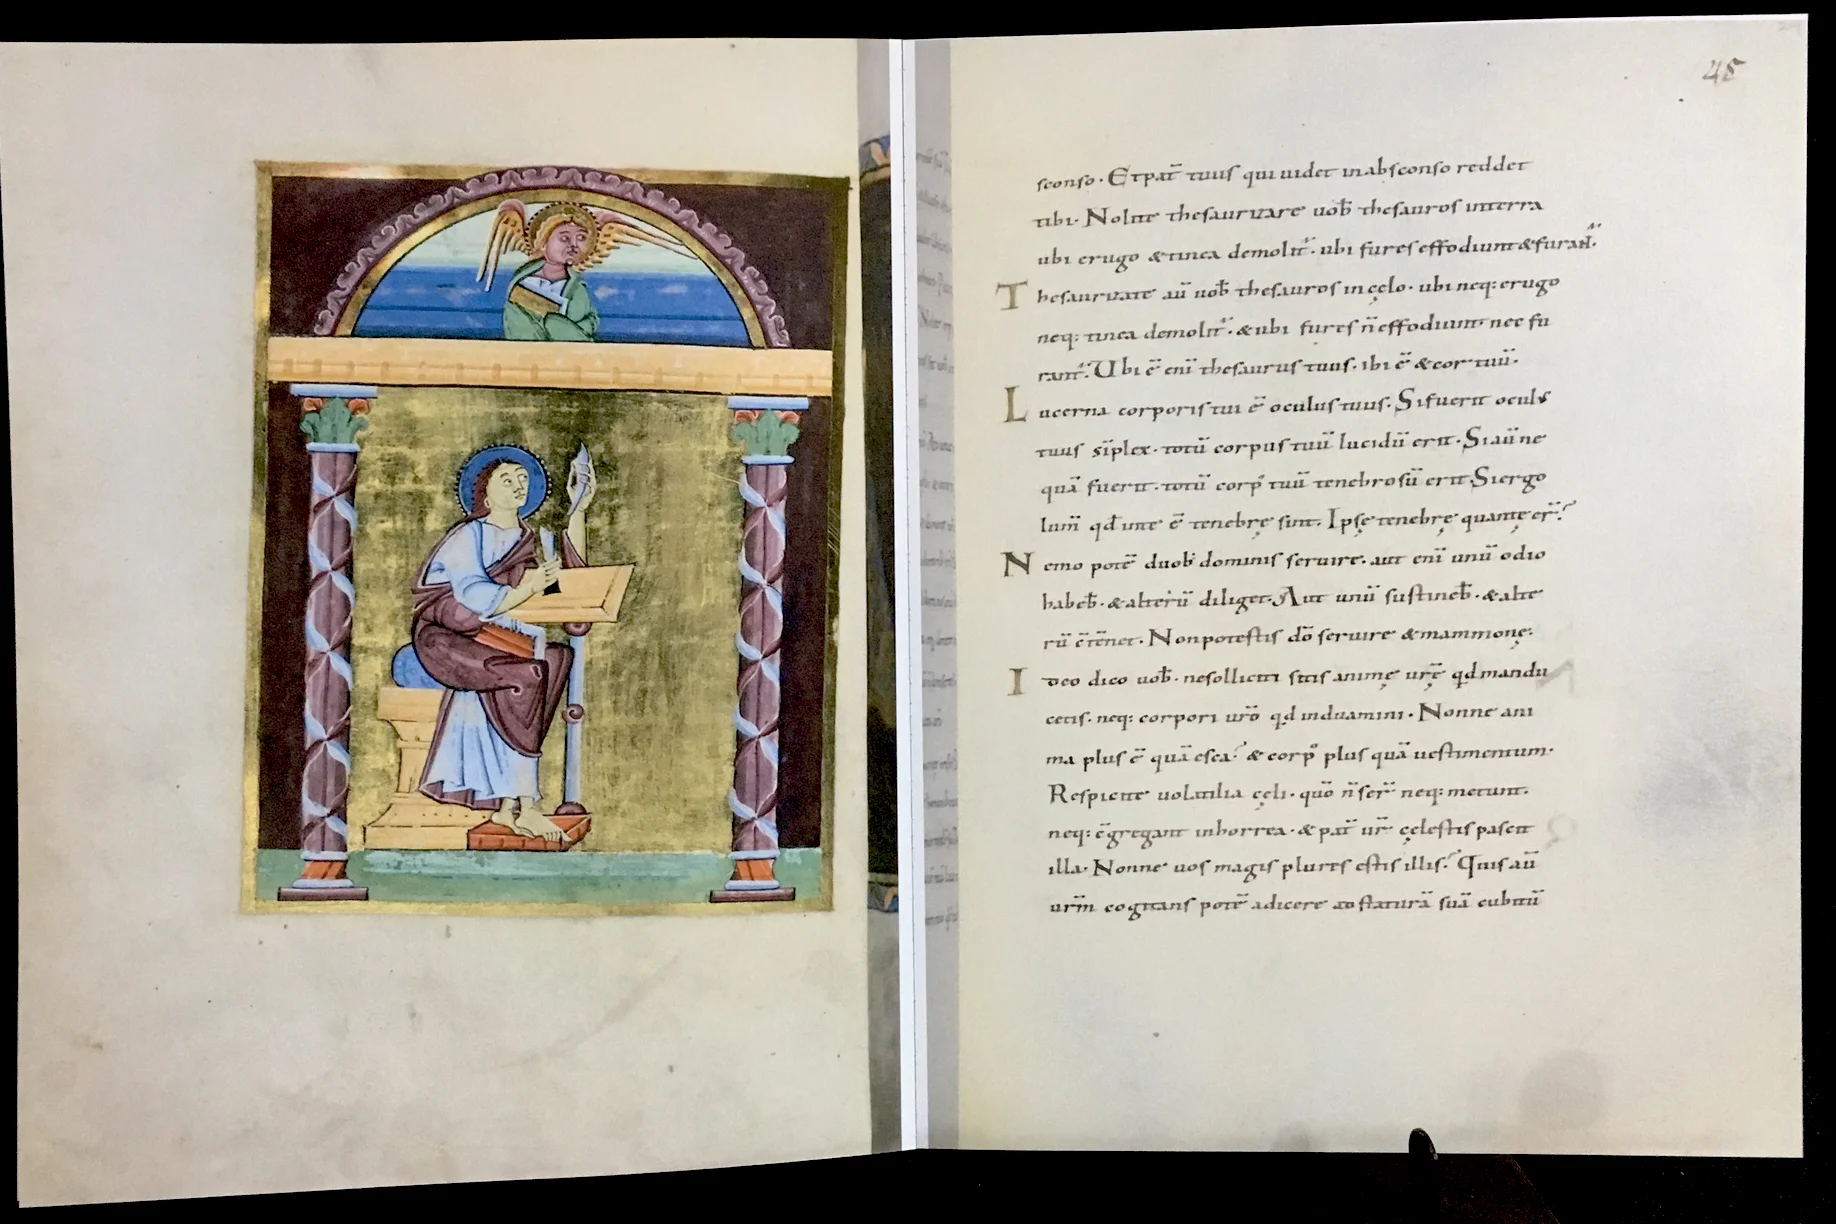 45
sconso · Et pat̄ tuus qui uidet in absconso reddet
tibi · Nolite thesaurizare uob̄ thesauros in terra
ubi erugo & tinea demolit̄ · ubi fures effodiunt & furant̄ ·
Thesaurizate aū uob̄ thesauros in cęlo · ubi neq: erugo
neq: tinea demolit̄ · & ubi fures n̄ effodiunt nec fu
rant̄ · Ubi ē enī thesaurus tuus · ibi ē & cor tuū ·
Lucerna corporis tui ē oculus tuus · Si fuerit oculus
tuus sīplex · totū corpus tuū lucidū erit · Si aū ne
quā fuerit · totū corpꝰ tuū tenebrosū erit · Si ergo
lum̄ qd̄ in te ē tenebrę sunt · Ipsę tenebrę quantę er̄?
Nemo potē duobꝰ dominis seruire · aut enī unū odio
habeb̄ · & alterū diliget · Aut unū sustineb̄ · & alte
rū c̄tēnet · Non potestis dō seruire & mammonę ·
Ideo dico uob̄ · ne solliciti sitis animę ur̄ę qd mandu
cetis · neq: corpori ur̄o qd induamini · Nonne ani
ma plus ē quā esca? & corpꝰ plus quā uestimentum ·
Respicite uolatilia cęli · quō n̄ ser̄ neq: metunt ·
neq: c̄gregant in horrea · & pat̄ ur̄ cęlestis pascit
illa · Nonne uos magis plures estis illis? Quis aū
ur̄m cogitans potē adicere ad staturā suā cubitū